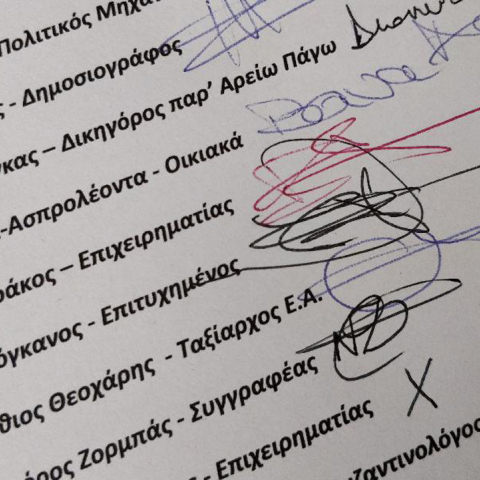 Πολιτικός Μηχα
ς - Δημοσιογράφος
γκας – Δικηγόρος παρ' Αρείω Πάγω
-Ασπρολέοντα - Οικιακά
ράκος – Επιχειρηματίας
όγκανος - Επιτυχημένος
θιος Θεοχάρης - Ταξίαρχος Ε.Α.
όρος Ζορμπάς - Συγγραφέας
- Επιχειρηματίας X
υζαντινολόγος